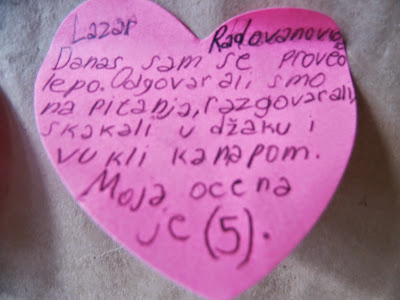 Lazar Radovanović
Danas sam se proveo
lepo. Odgovarali smo
na pitanja, razgovarali,
skakali u džaku i
vukli kanapom.
Moja ocena
je (5).